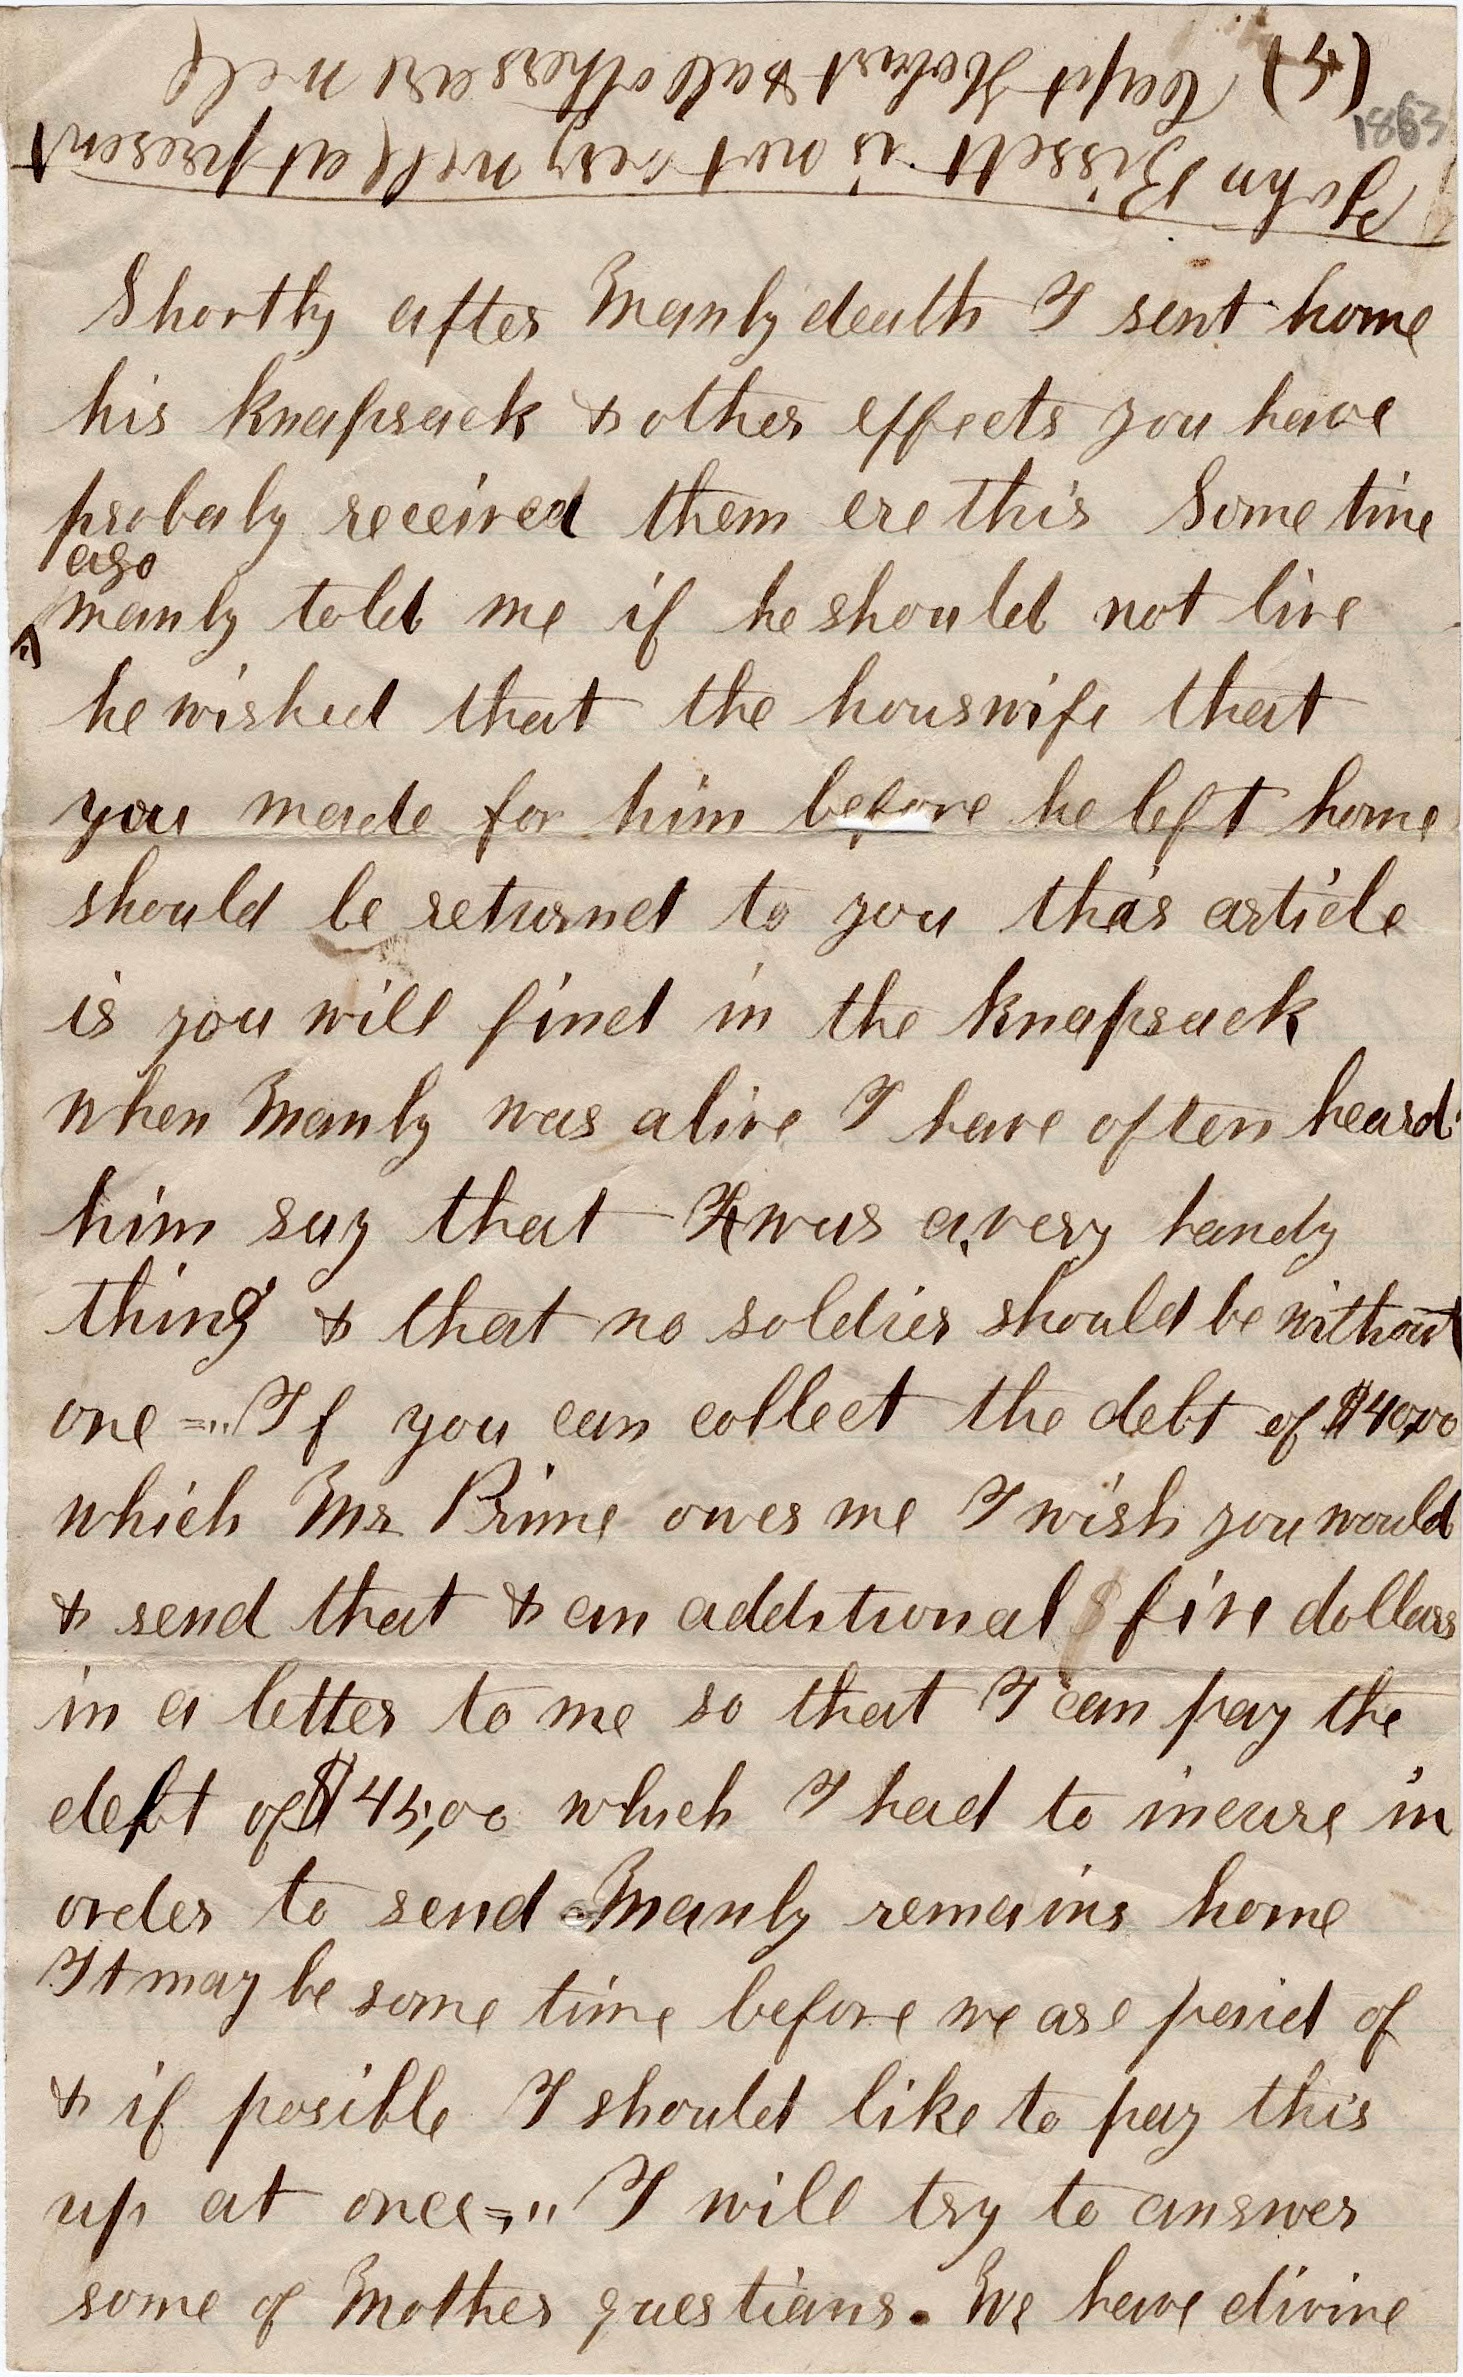 John Bissell is not very well at present
(4) Capt Hobart & all others are well
1863
Shortly after Manly death I sent home
his knapsack & other effects you have
probaly received them ere this Some time
ago
Manly told me if he should not live
he wished that the houswife that
you made for him before he left home
should be returned to you this article
is you will find in the knapsack
when Manly was alive I have often heard
him say that It was a very handy
thing & that no soldier should be without
one =.. If you can collect the debt of $40,00
which Mr Prime owes me I wish you would
& send that & an additional $ five dollars
in a letter to me so that I can pay the
debt of $45,00 which I had to incure in
order to send Manly remains home
It may be some time before we are paid of
& if posible I should like to pay this
up at once=,.. I will try to answer
some of Mother questians. We have divine